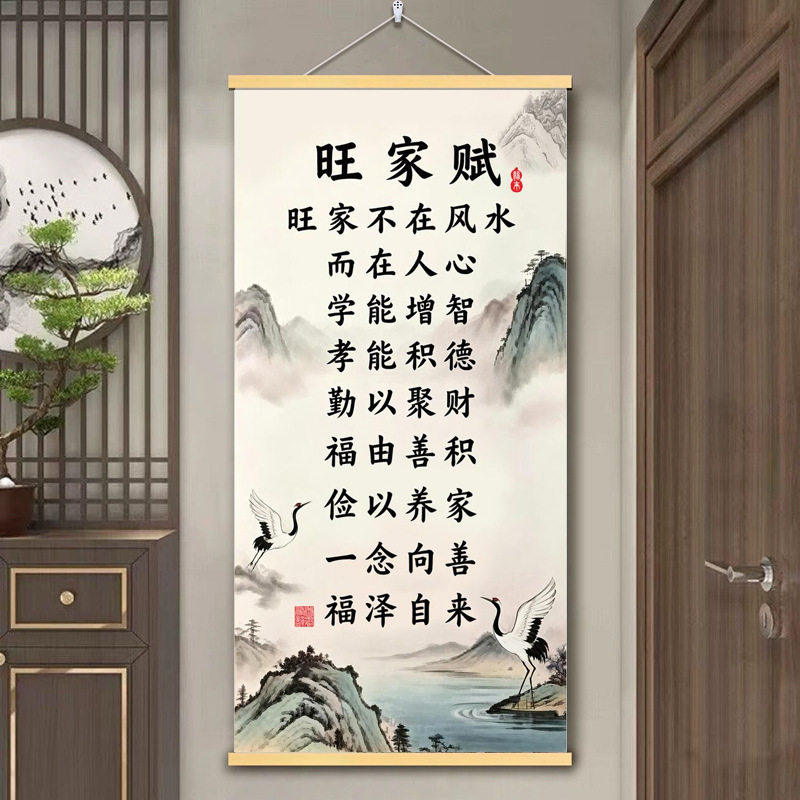 旺家赋
旺家不在风水
而在人心
学能增智
孝能积德
勤以聚财
福由善积
俭以养家
一念向善
福泽自来